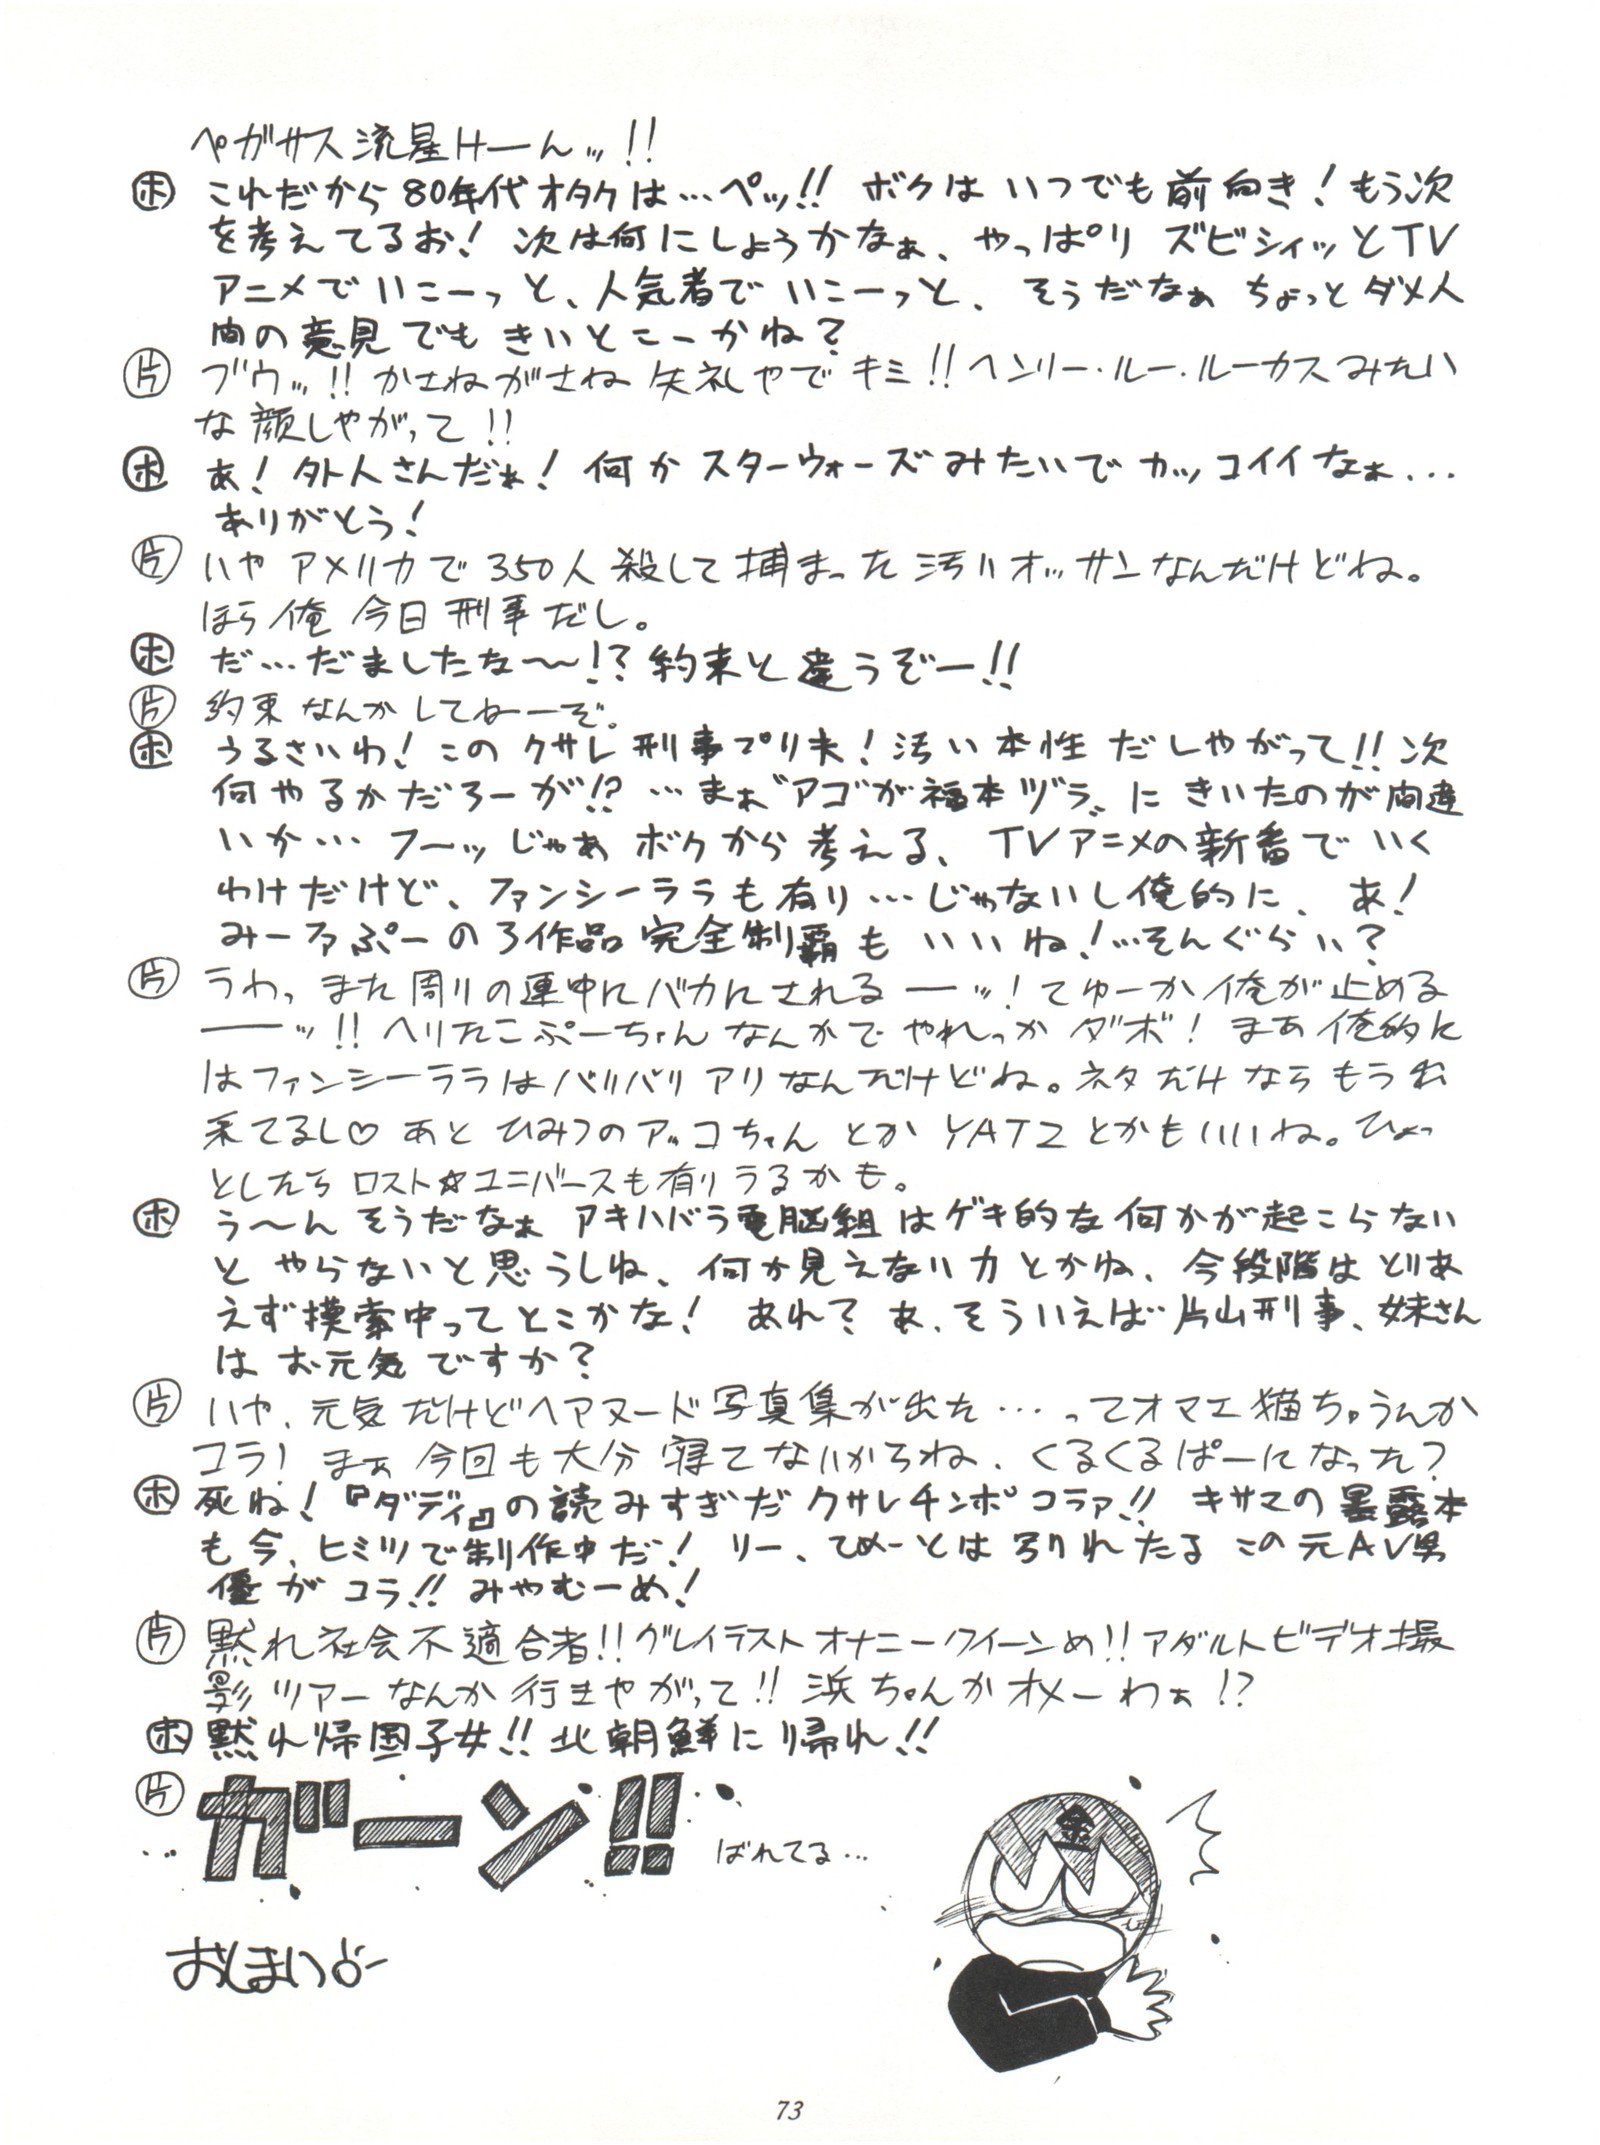 ペガサス流星けーんッ!!
ホ これだから80年代オタクは…ペッ!! ボクは いつでも前向き!もう次
を考えてるお! 次は何にしようかなぁ、やっぱり ズビシィッとTV
アニメで いこーっと、人気者で いこーっと、 そうだなぁ ちょっとダメ人
間の意見でも きいとこーかね?
片 ブウッ!! かさねがさね 失礼やで キミ!! ヘンリー・ルー・ルーカスみたい
な顔しやがって!!
ホ あ! 外人さんだぁ! 何か スターウォーズみたいで カッコイイなぁ...
ありがとう!
片 いや アメリカで 350人 殺して 捕まった 汚いオッサンなんだけどね。
ほら俺 今日 刑事だし。
ホ だ…だましたな〜〜!? 約束と違うぞー!!
片 約束なんかしてねーぞ。
ホ うるさいわ! この クサレ刑事プリ夫! 汚い本性 だしやがって!! 次
何やるかだろーが!? …まぁ〝アゴが福本ヅラ〟に きいたのが間違
いか… フーッ じゃあ ボクから考える、 TVアニメの新番で いく
わけだけど、ファンシーララも有り…じゃないし俺的に、 あ!
みーファぷーの3作品完全制覇も いいね!…そんぐらい?
片 うわっ また周りの連中にバカにされるーーッ! てゆーか俺が止める
ーーッ!! ヘリたこぷーちゃんなんかで やれっか ダボ! まあ俺的に
はファンシーララはバリバリアリなんだけどね。ネタだけなら もう出
来てるし♡ あと ひみつのアッコちゃん とか YAT2とかもいいね。ひょっ
としたら ロスト☆ユニバースも有りうるかも。
ホ う〜ん そうだなぁ アキハバラ電脳組はゲキ的な何かが起こらない
と やらないと思うしね、何か見えない力とかね、今段階は とりあ
えず模索中ってとこかな! あれ? あ、そういえば片山刑事、妹さん
は お元気ですか?
片 いや、元気だけどヘアヌード写真集が出た…ってオマエ猫ちゃうんか
コラ! まぁ 今回も大分 寝てないからね、くるくるぱーになった?
ホ 死ね!『ダディ』の読みすぎだ クサレチンポ コラァ!! キサマの暴露本
も今、ヒミツで制作中だ! リー、てめーとは 切れたる この元AV男
優が コラ!! みやむーめ!
片 黙れ社会不適合者!! グレイテストオナニークイーンめ!! アダルトビデオ撮
影ツアーなんか行きやがって!! 浜ちゃんかオメーわぁ!?
ホ 黙れ帰国子女!! 北朝鮮に帰れ!!
片 ガーン!! ばれてる…
金
おしまい
73